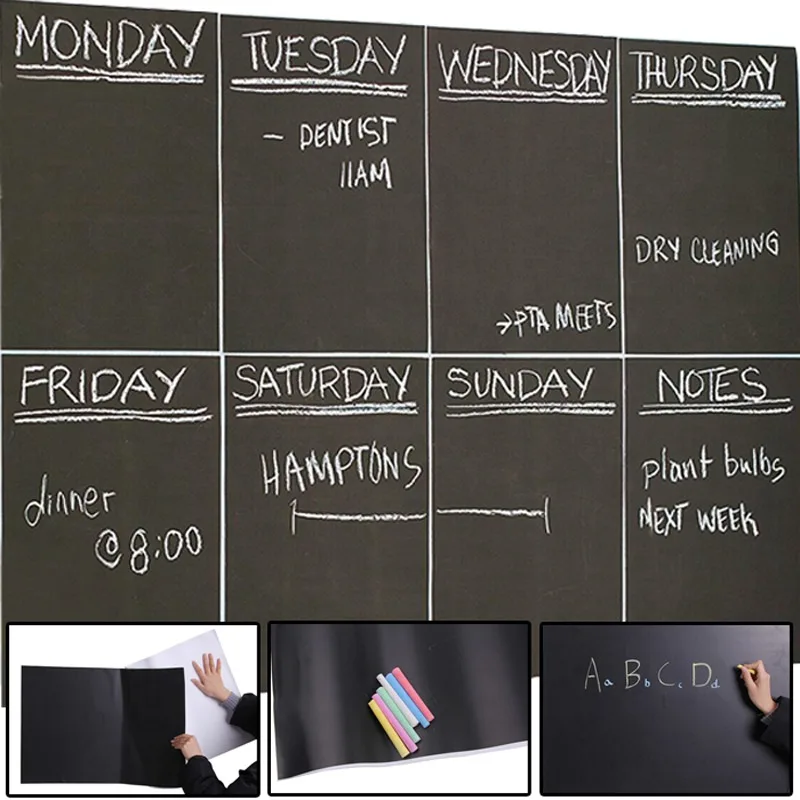 MONDAY
TUESDAY
- DENTIST
11AM
WEDNESDAY
→PTA MEETS
THURSDAY
DRY CLEANING
FRIDAY
dinner
@ 8:00
SATURDAY
HAMPTONS
SUNDAY
NOTES
plant bulbs
NEXT WEEK
Aa Bb Cc Dd